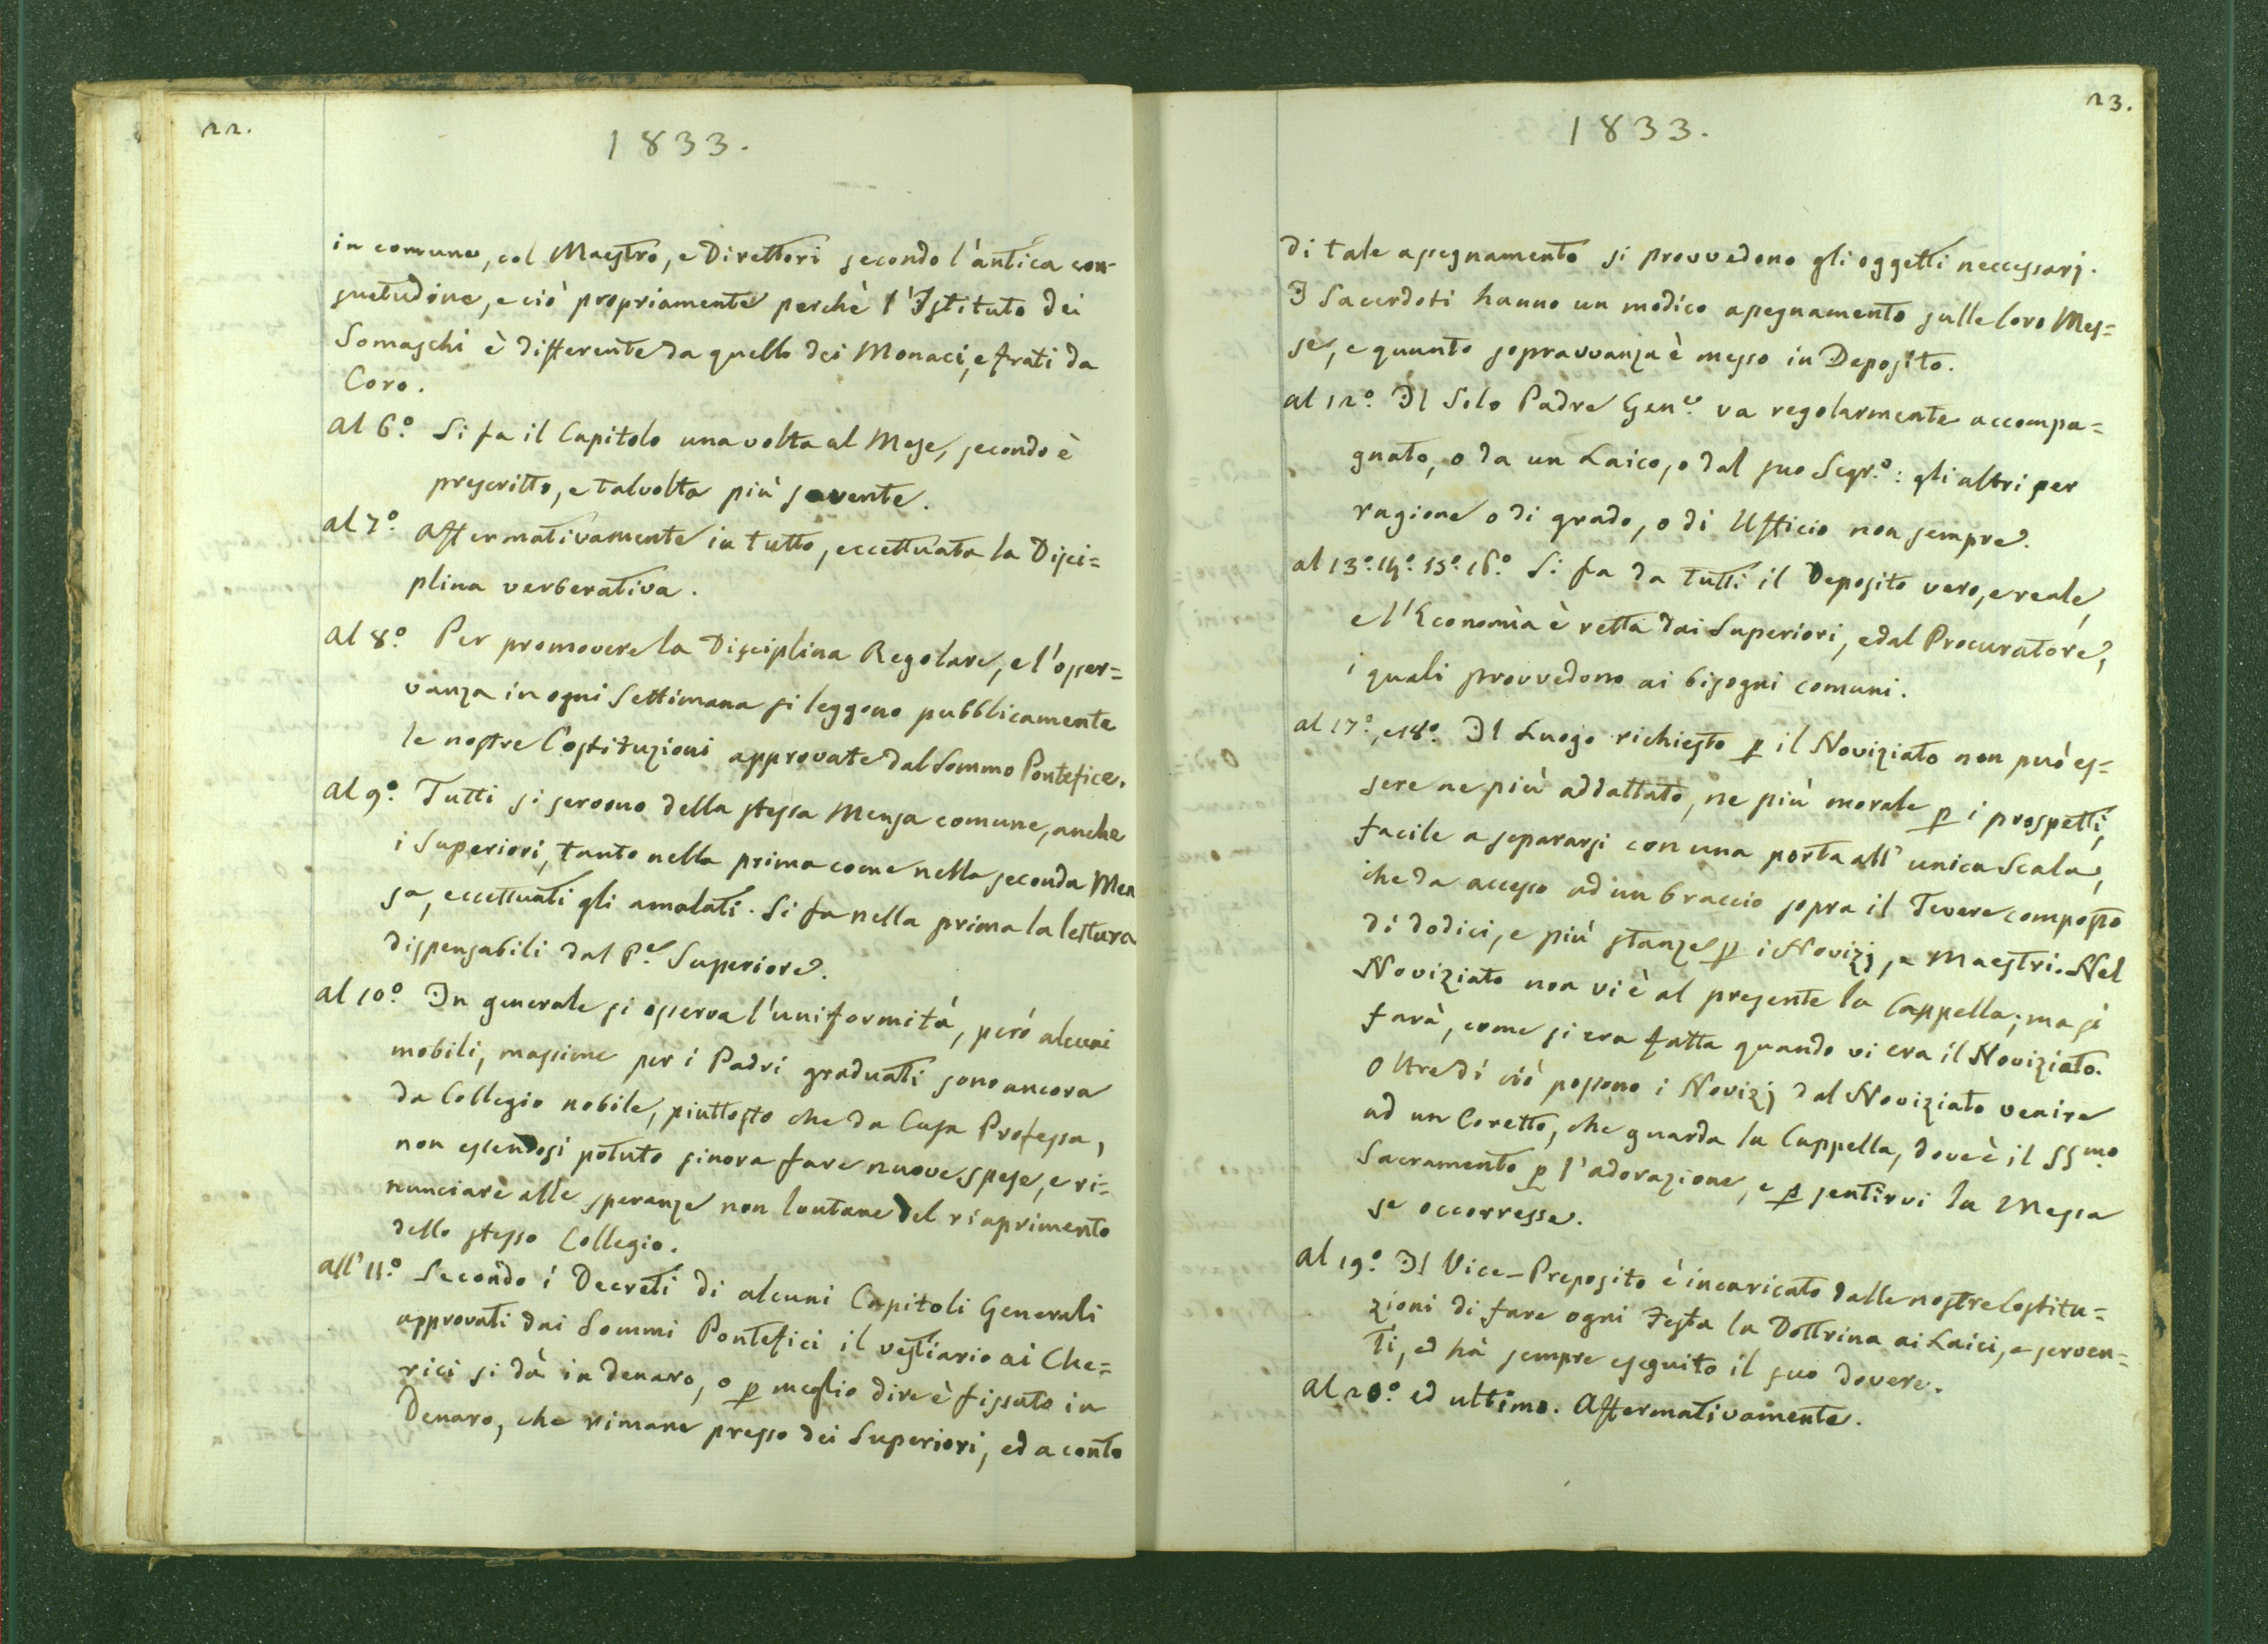 22.
1833.
in comune, col Maestro, e Direttori secondo l'antica con-
suetudine, e ciò propriamente perchè l'Istituto dei
Somaschi è differente da quello dei Monaci, e frati da
Coro.
al 6.º Si fa il Capitolo una volta al Mese, secondo è
prescritto, e talvolta più sovente.
al 7º. Affermativamente in tutto, eccettuata la Disci=
plina verberativa.
al 8.º Per promovere la Disciplina Regolare, e l'osser=
vanza in ogni Settimana si leggono pubblicamente
le nostre Costituzioni approvate dal Sommo Pontefice.
al 9.º Tutti si servono della stessa Mensa comune, anche
i Superiori, tanto nella prima come nella seconda Men
sa, eccettuati gli amalati. Si fa nella prima la lettura
dispensabili dal P.e Superiore.
al 10.º In generale si osserva l'uniformità, però alcuni
mobili, massime per i Padri graduati sono ancora
da Collegio nobile, piuttosto che da Casa Professa,
non essendosi potuto sinora fare nuove spese, e ri=
nunciare alle speranze non lontane del riaprimento
dello stesso Collegio.
all' 11.º Secondo i Decreti di alcuni Capitoli Generali
approvati dai Sommi Pontefici il vestiario ai Che=
rici si dà in denaro, o p meglio dire è fissato in
Denaro, che rimane presso dei Superiori, ed a conto
23.
1833.
di tale assegnamento si provvedono gli oggetti neccessarj.
I Sacerdoti hanno un modico assegnamento sulle loro Mes=
se, e quanto sopravvanza è messo in Deposito.
al 12.º Il Solo Padre Gen.e va regolarmente accompa=
gnato, o da un Laico, o dal suo Segr.º: gli altri per
ragione o di grado, o di Ufficio non sempre.
al 13.º 14.º 15.º 16.º Si fa da tutti il Deposito vero, e reale,
e l'Economìa è retta dai Superiori, e dal Procuratore,
i quali provvedono ai bisogni comuni.
al 17.º, e 18.º Il Luogo richiesto p il Noviziato non può es=
sere ne più addattato, ne più morale p i prospetti,
facile a separarsi con una porta all' unica Scala,
che da accesso ad un braccio sopra il Tevere composto
di dodici, e più stanze p i Novizj, e Maestri. Nel
Noviziato non vi è al presente la Cappella; ma si
farà, come si era fatta quando vi era il Noviziato.
Oltre di ciò possono i Novizj dal Noviziato venire
ad un Coretto, che guarda la Cappella, dove è il SSmo
Sacramento p l'adorazione, e p sentirvi la Messa
se occorresse.
al 19.º Il Vice-Preposito è incaricato dalle nostre Costitu=
zioni di fare ogni Festa la Dottrina ai Laici, e serven=
ti, ed hà sempre eseguito il suo dovere.
al 20.º ed ultimo. Affermativamente.